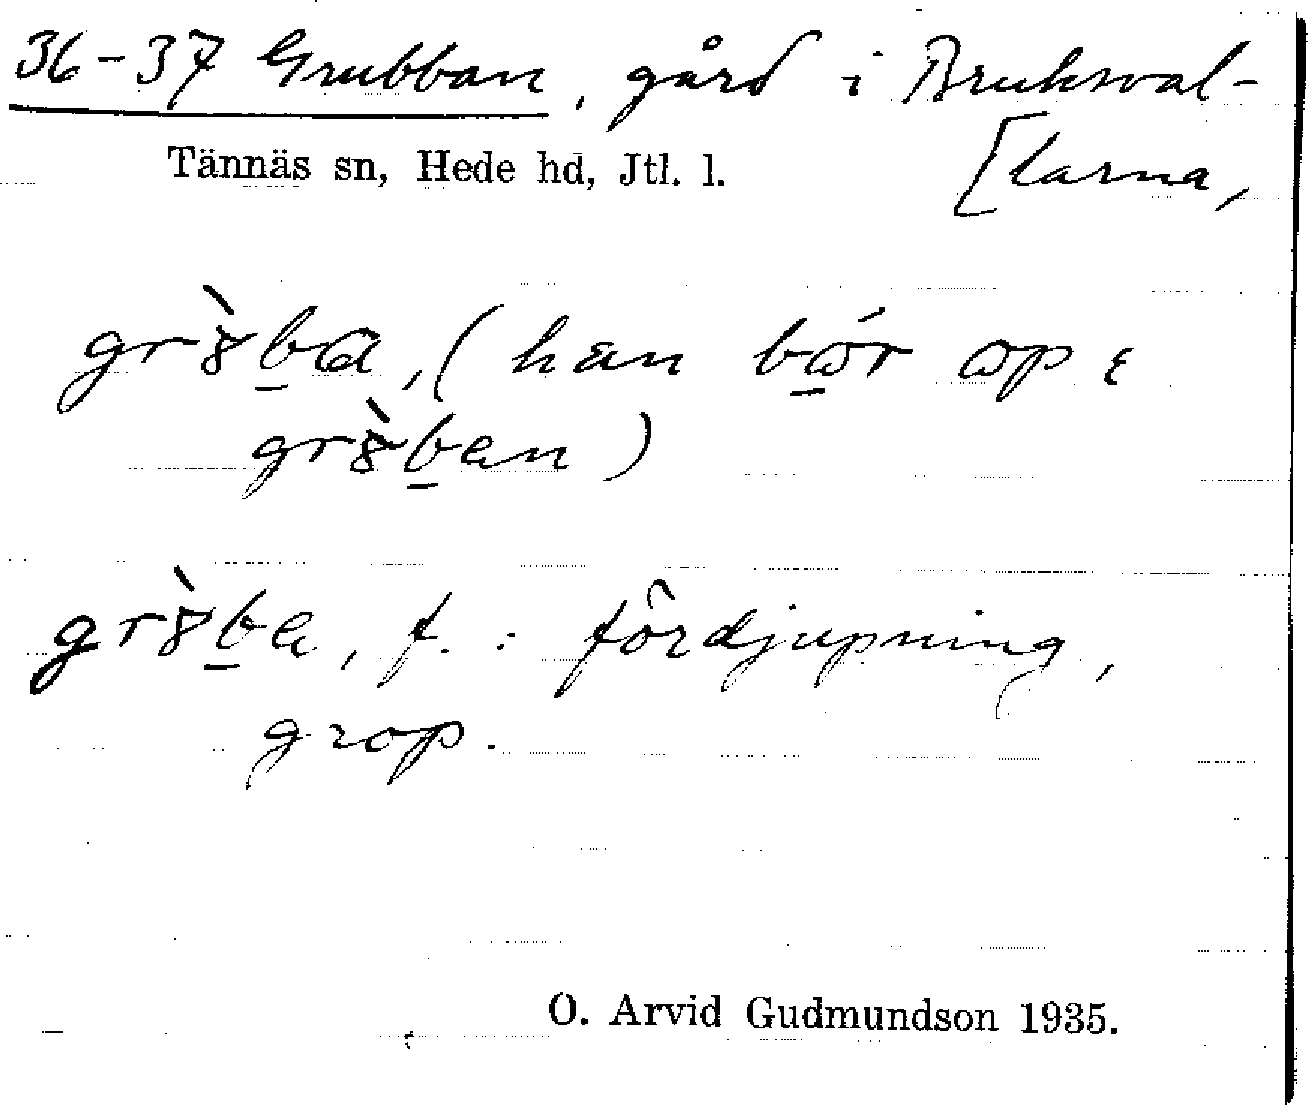 36-37 Grubban, gård i Bruksval-
[larna,
Tännäs sn, Hede hd, Jtl. l.
gr8̀b̲a, (han bώ̲r ωp ε
gr8̀b̲an)
gr8̀b̲a, f. : fördjupning,
grop.
O. Arvid Gudmundson 1935.